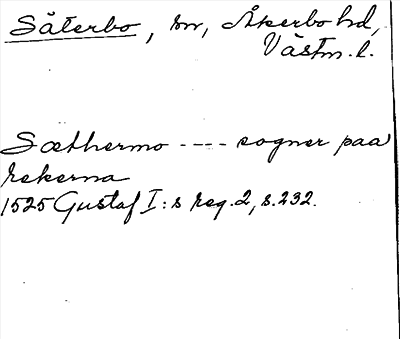 Säterbo, sn, Åkerbo hd,
Västm. l.
Sæthermo ---- sogner paa
rekerna
1525 Gustaf I:s reg. 2, s. 232.